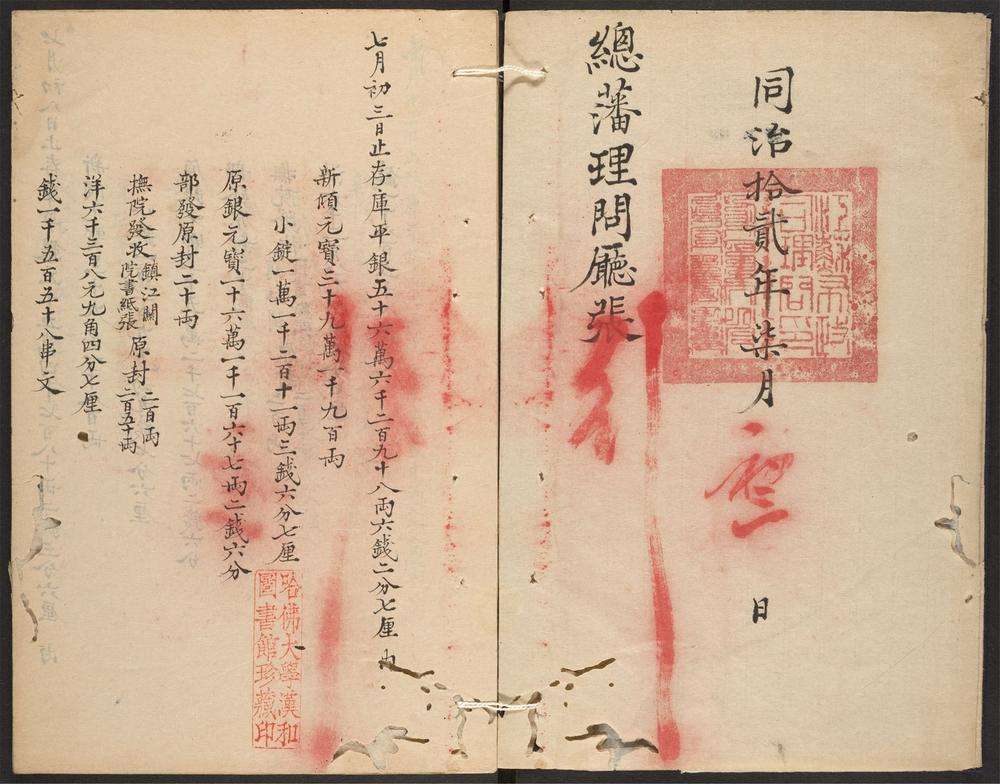 同治拾貳年柒月 日
總藩理問廳張
七月初三日止存庫平銀五十六萬六千二百九十八兩六錢二分七厘 內
新傾元寶三十九萬一千九百兩
小錠一萬一千二百十一兩三錢六分七厘
原銀元寶一十六萬一千一百六十七兩二錢六分
部發原封二十兩
撫院發收鎮江關院書紙張原封二百兩二百五十兩
洋六千三百八元九角四分七厘
錢一千五百五十八串文
哈佛大學漢和
圖書館珍藏印